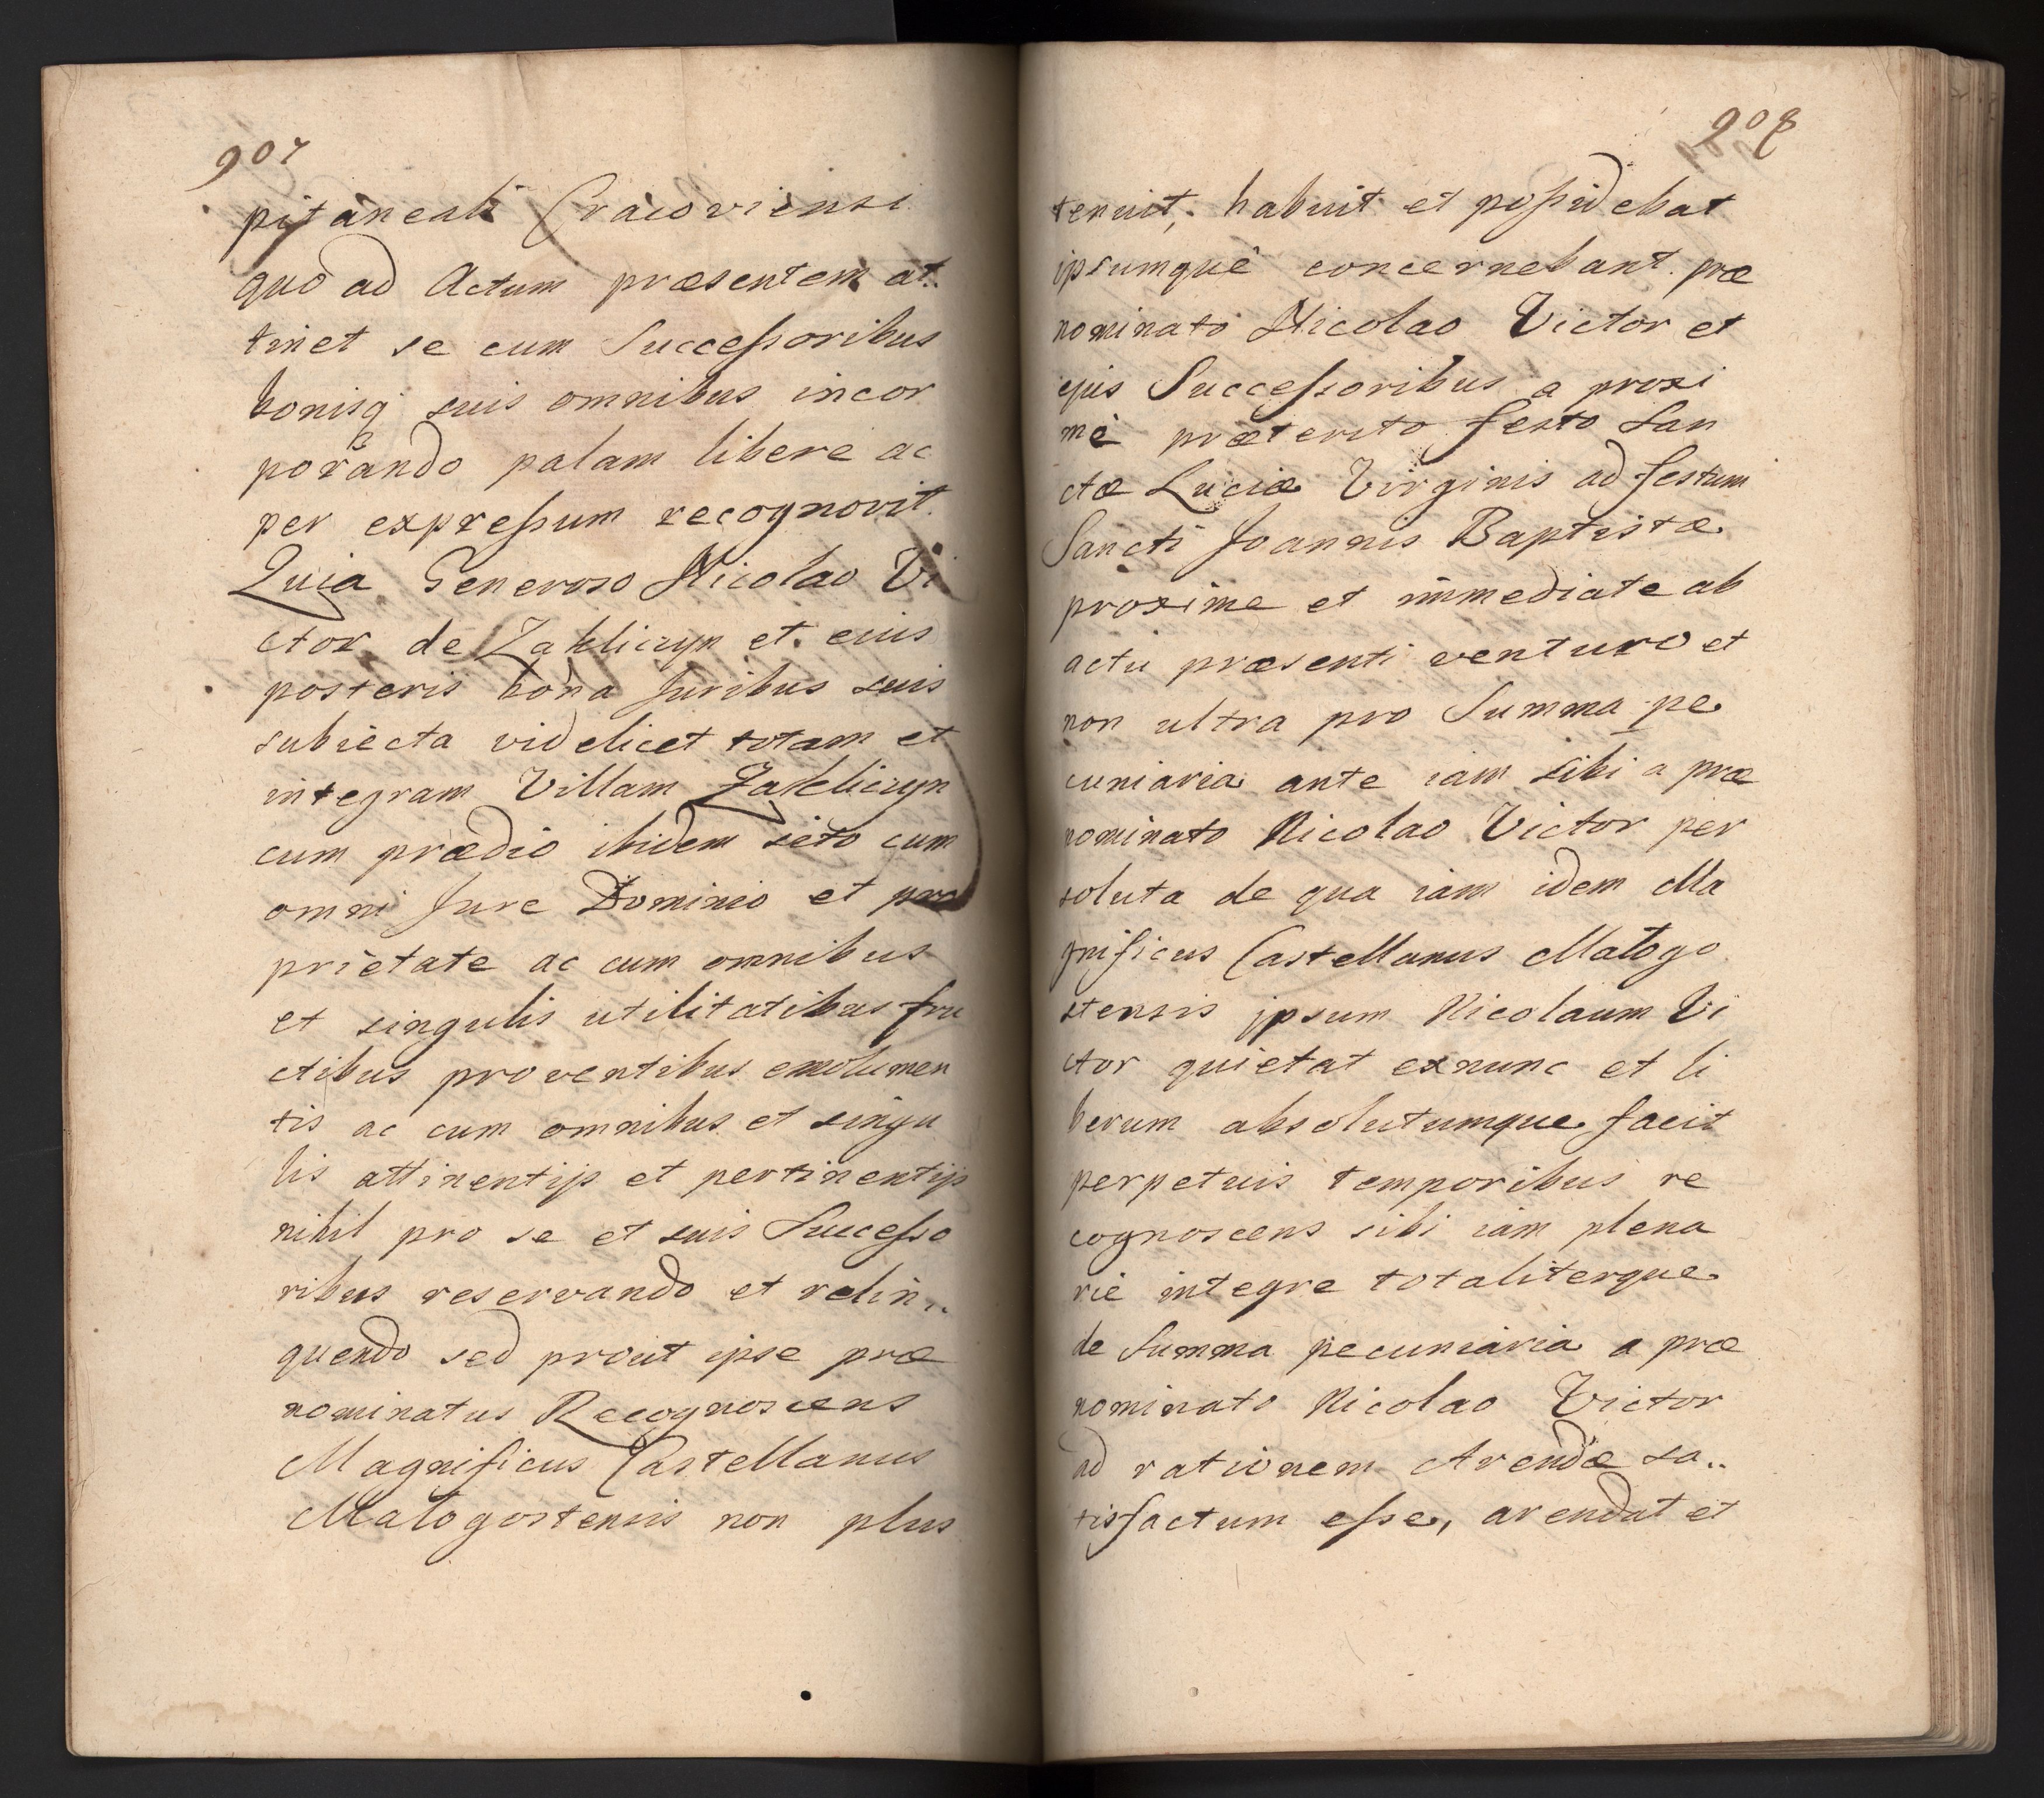 907
pitaneali Cracoviensi
quo ad Actum præsentem at..
tinet se cum Successoribus
bonisq suis omnibus incor
porando palam libere ac
per expressum recognovit.
Quia Generoso Nicolao Vi
ctor de Zakliczyn et eius
posteris bona Juribus suis
subiecta videlicet totam et
integram Villam Zakliczyn
cum prædio ibidem sito cum
omni Jure Dominio et pro
prietate ac cum omnibus
et singulis utilitatibus fru
ctibus proventibus emolumen
tis ac cum omnibus et singu
lis attinentijs et pertinentijs
nihil pro se et suis Successo
ribus reservando et relin..
quendo sed prout ipse præ
nominatus Recognoscens
Magnificus Castellanus
Malogostensis non plus
908
tenuit, habuit et possidebat
ipsumquè concernebant præ
nominato Nicolao Victor et
ejus Successoribus a proxi
mè præterito festo San
ctæ Luciæ Virginis ad festum
Sancti Joannis Baptistæ
proxime et immediate ab
actu præsenti venturo et
non ultra pro Summa pe
cuniaria ante iam sibi a præ
nominato Nicolao Victor per
soluta de qua iam idem Ma
gnificus Castellanus Malogo
stensis ipsum Nicolaum Vi
ctor quietat exnunc et li
berum absolutumque facit
perpetuis temporibus re
cognoscens sibi iam plena
rie integre totaliterque
de Summa pecuniaria a præ
nominato Nicolao Victor
ad rationem Arendæ sa..
tisfactum esse, arendat et